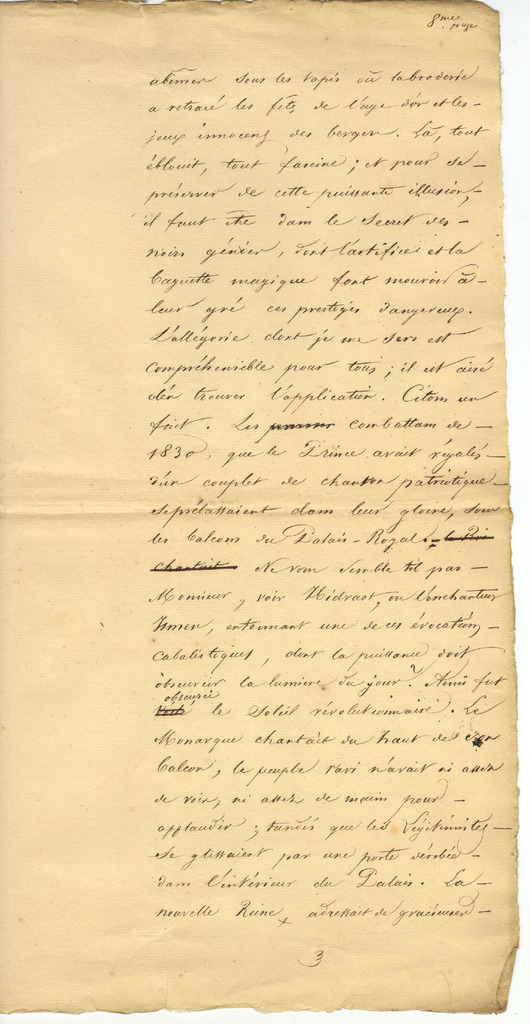 8me page
abîmer sous les tapis où la broderie
a retracé les fêtes de l'age d'or et les -
jeux innocens des bergers. Là, tout
éblouit, tout fascine ; et pour se -
préserver de cette puissante illusion,
il faut être dans le secret des -
noirs génies, dont l'artifice et la
baguette magique font mouvoir à -
leur gré ces prestiges dangereux.
L'allégorie dont je me sers est
compréhensible pour tous ; il est aisé
d'en trouver l'application. Citons un
fait. Les combattans de -
1830, que le Prince avait régalés -
d'un couplet de chanson patriotique -
se prélassaient dans leur gloire, sous
les balcons du Palais-Royal. le Roi
chantait Ne vous semble t'il pas -
Monsieur, voir Hidraot, ou l'enchanteur
Ismen, entonnant une de ces évocations -
cabalistiques, dont la puissance doit
obscurcir la lumière du jour ? Ainsi fut
obscurci
voilé le Soleil révolutionnaire. Le
Monarque chantait du haut de son
balcon, le peuple ravi n'avait ni assez
de voix, ni assez de mains pour -
applaudir ; tandis que les Légitimistes -
se glissaient par une porte dérobée -
dans l'intérieur du Palais. La -
nouvelle Reine adressait de gracieuses -
3